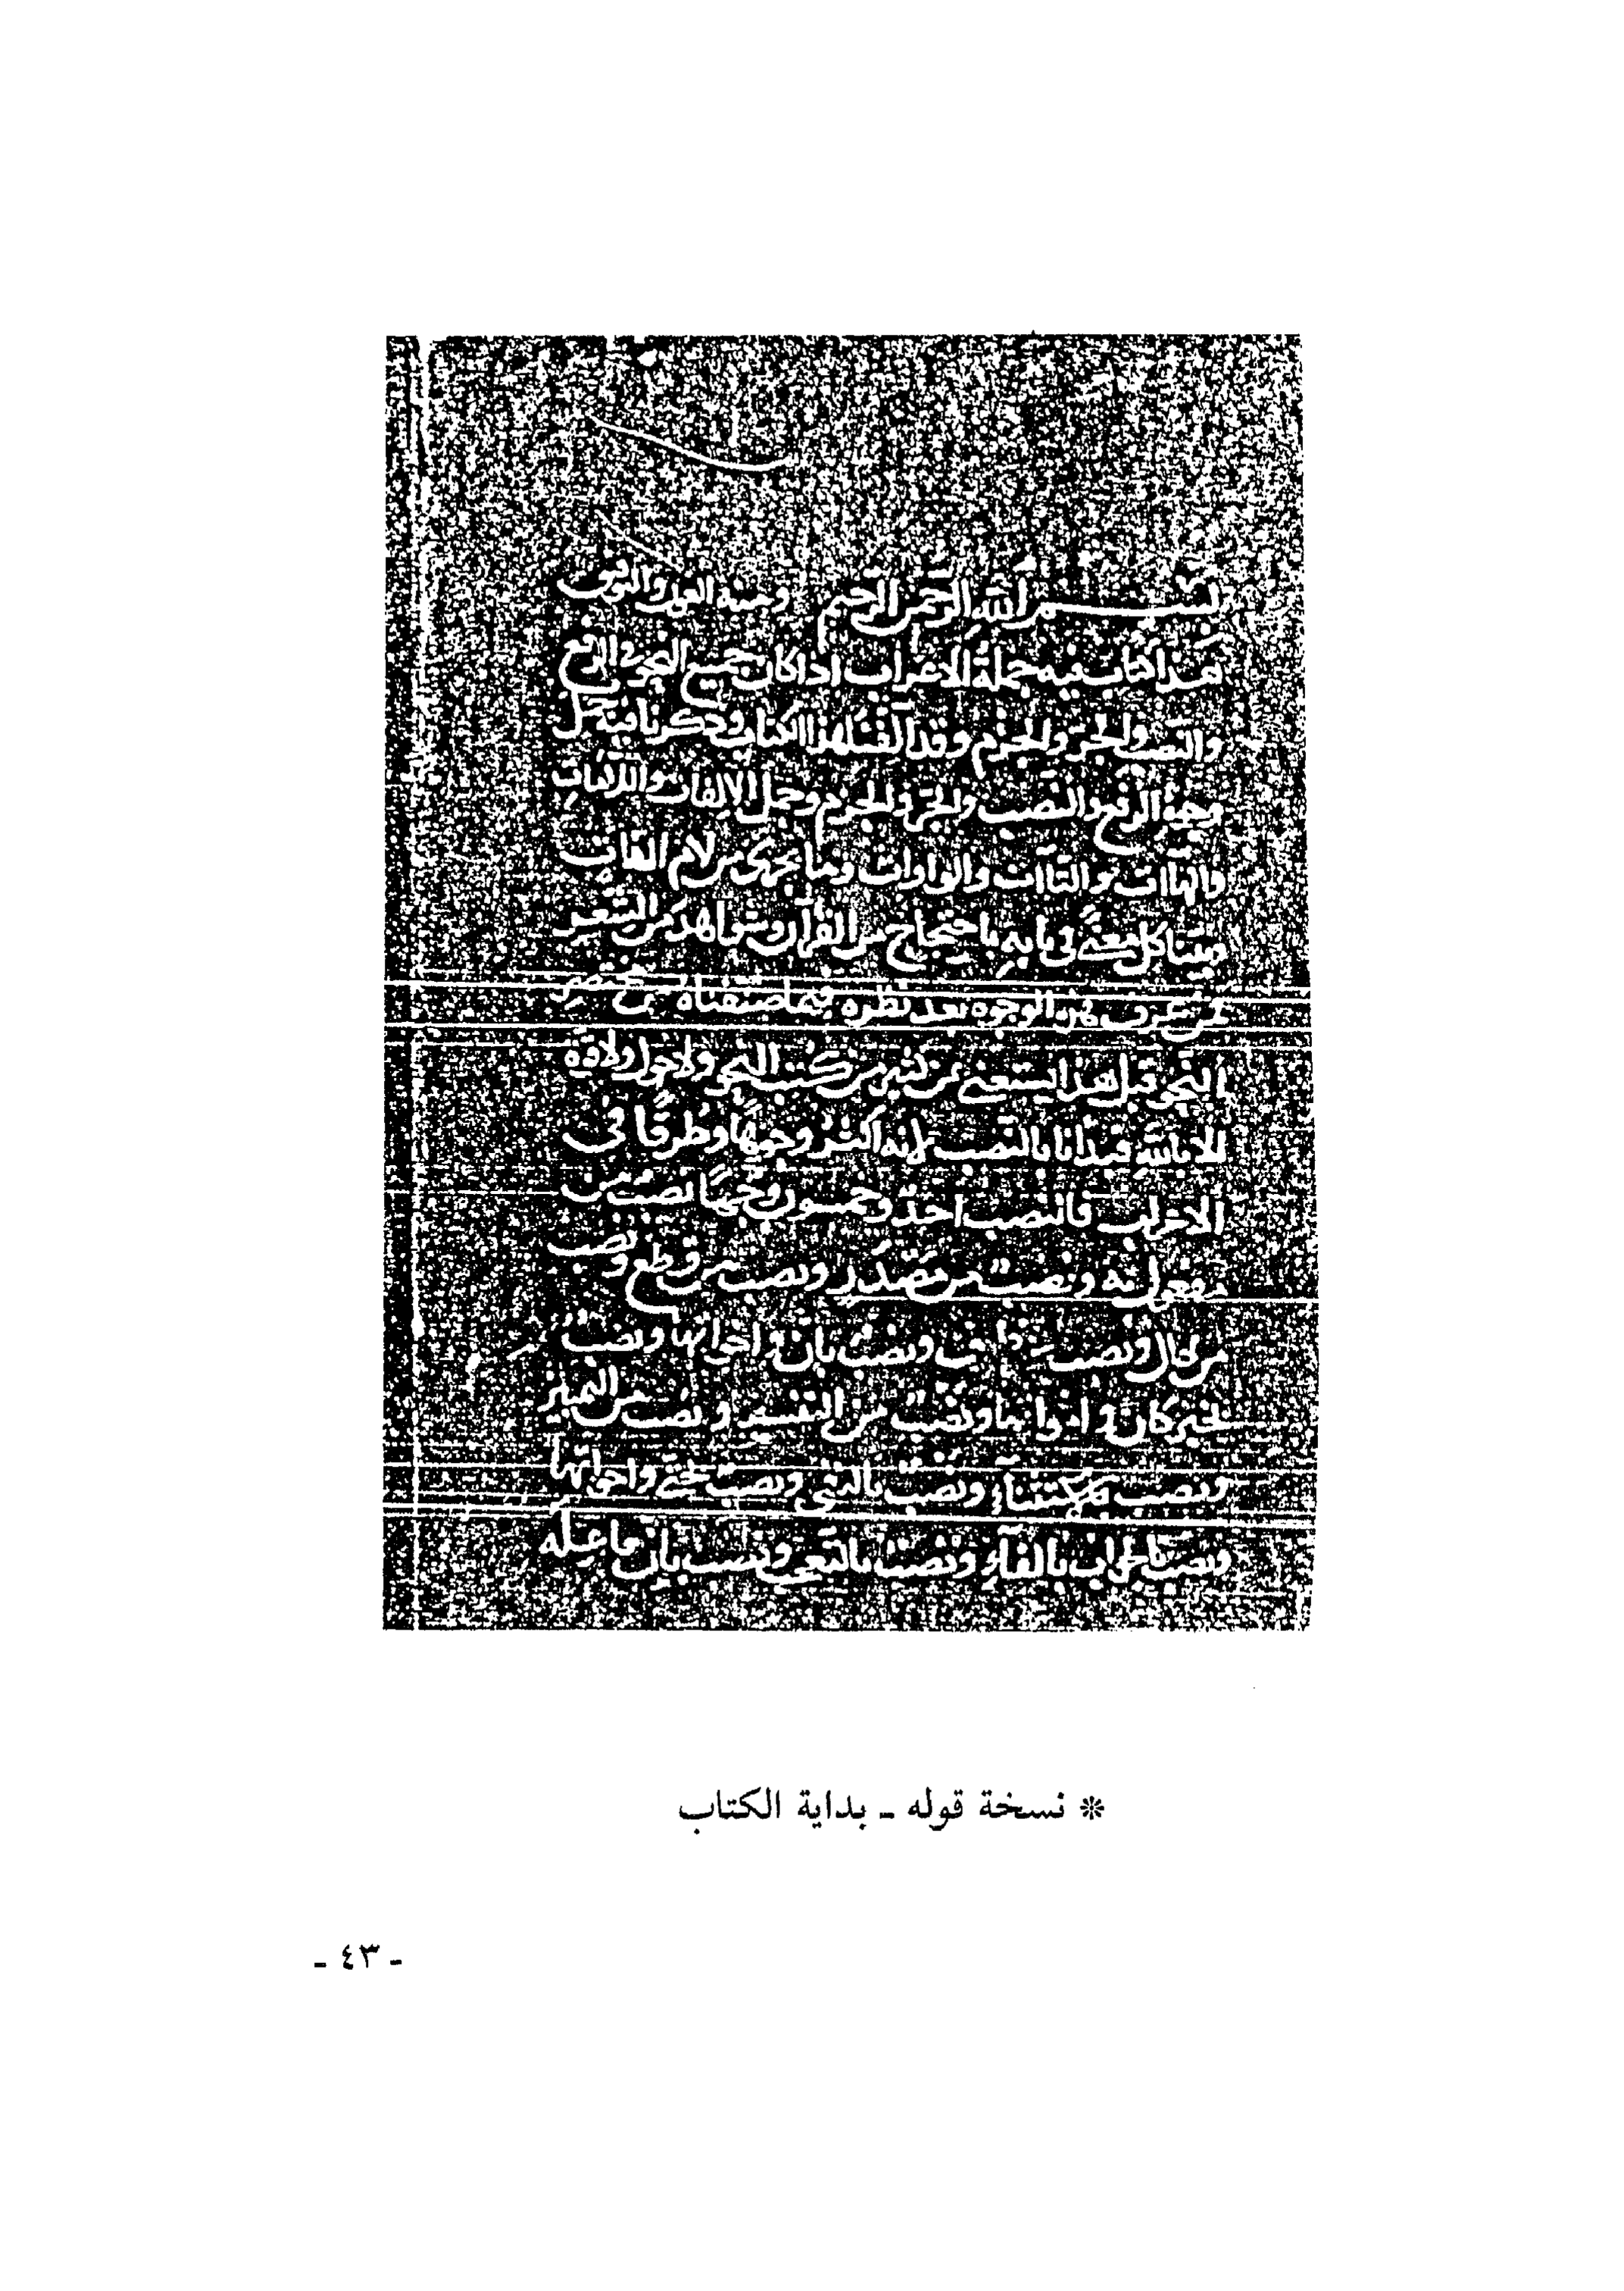 بسم الله الرحمن الرحيم ومنه العون والتوفيق
هذا كتاب فيه جملة الاعراب اذ كان جميع النحو في الرفع
والنصب والجر والجزم وقد ألفنا هذا الكتاب وذكرنا فيه جمل
وجوه الرفع والنصب والجر والجزم وجمل الالفات واللامات
والهاات والتاات والواوات وما يجري من لام الفات
كل معنى في بابه باحتجاج من القرآن وشواهد من الشعر
من عرف هذه الوجوه بعد نظره فيما صنفناه من مختصر
النحو قبل هذا استغنى عن كثير من كتب النحو ولا حول ولا قوة
الا بالله فبدأنا بالنصب لانه أكثر وجوها وطرقا في
الاعراب فالنصب احد وخمسون وجها نصب من
مفعول به ونصب من مصدر ونصب من قطع ونصب
من حال ونصب من ونصب بان واخواتها ونصب
بخبر كان واخواتها ونصب من التفسير ونصب من التمييز
ونصب بالاستثناء ونصب بالنفي ونصب بحتى واخواتها
ونصب بالجواب بالفاء ونصب بالتعجب ونصب بان فاعله
* نسخة قوله - بداية الكتاب
- ٤٣ -